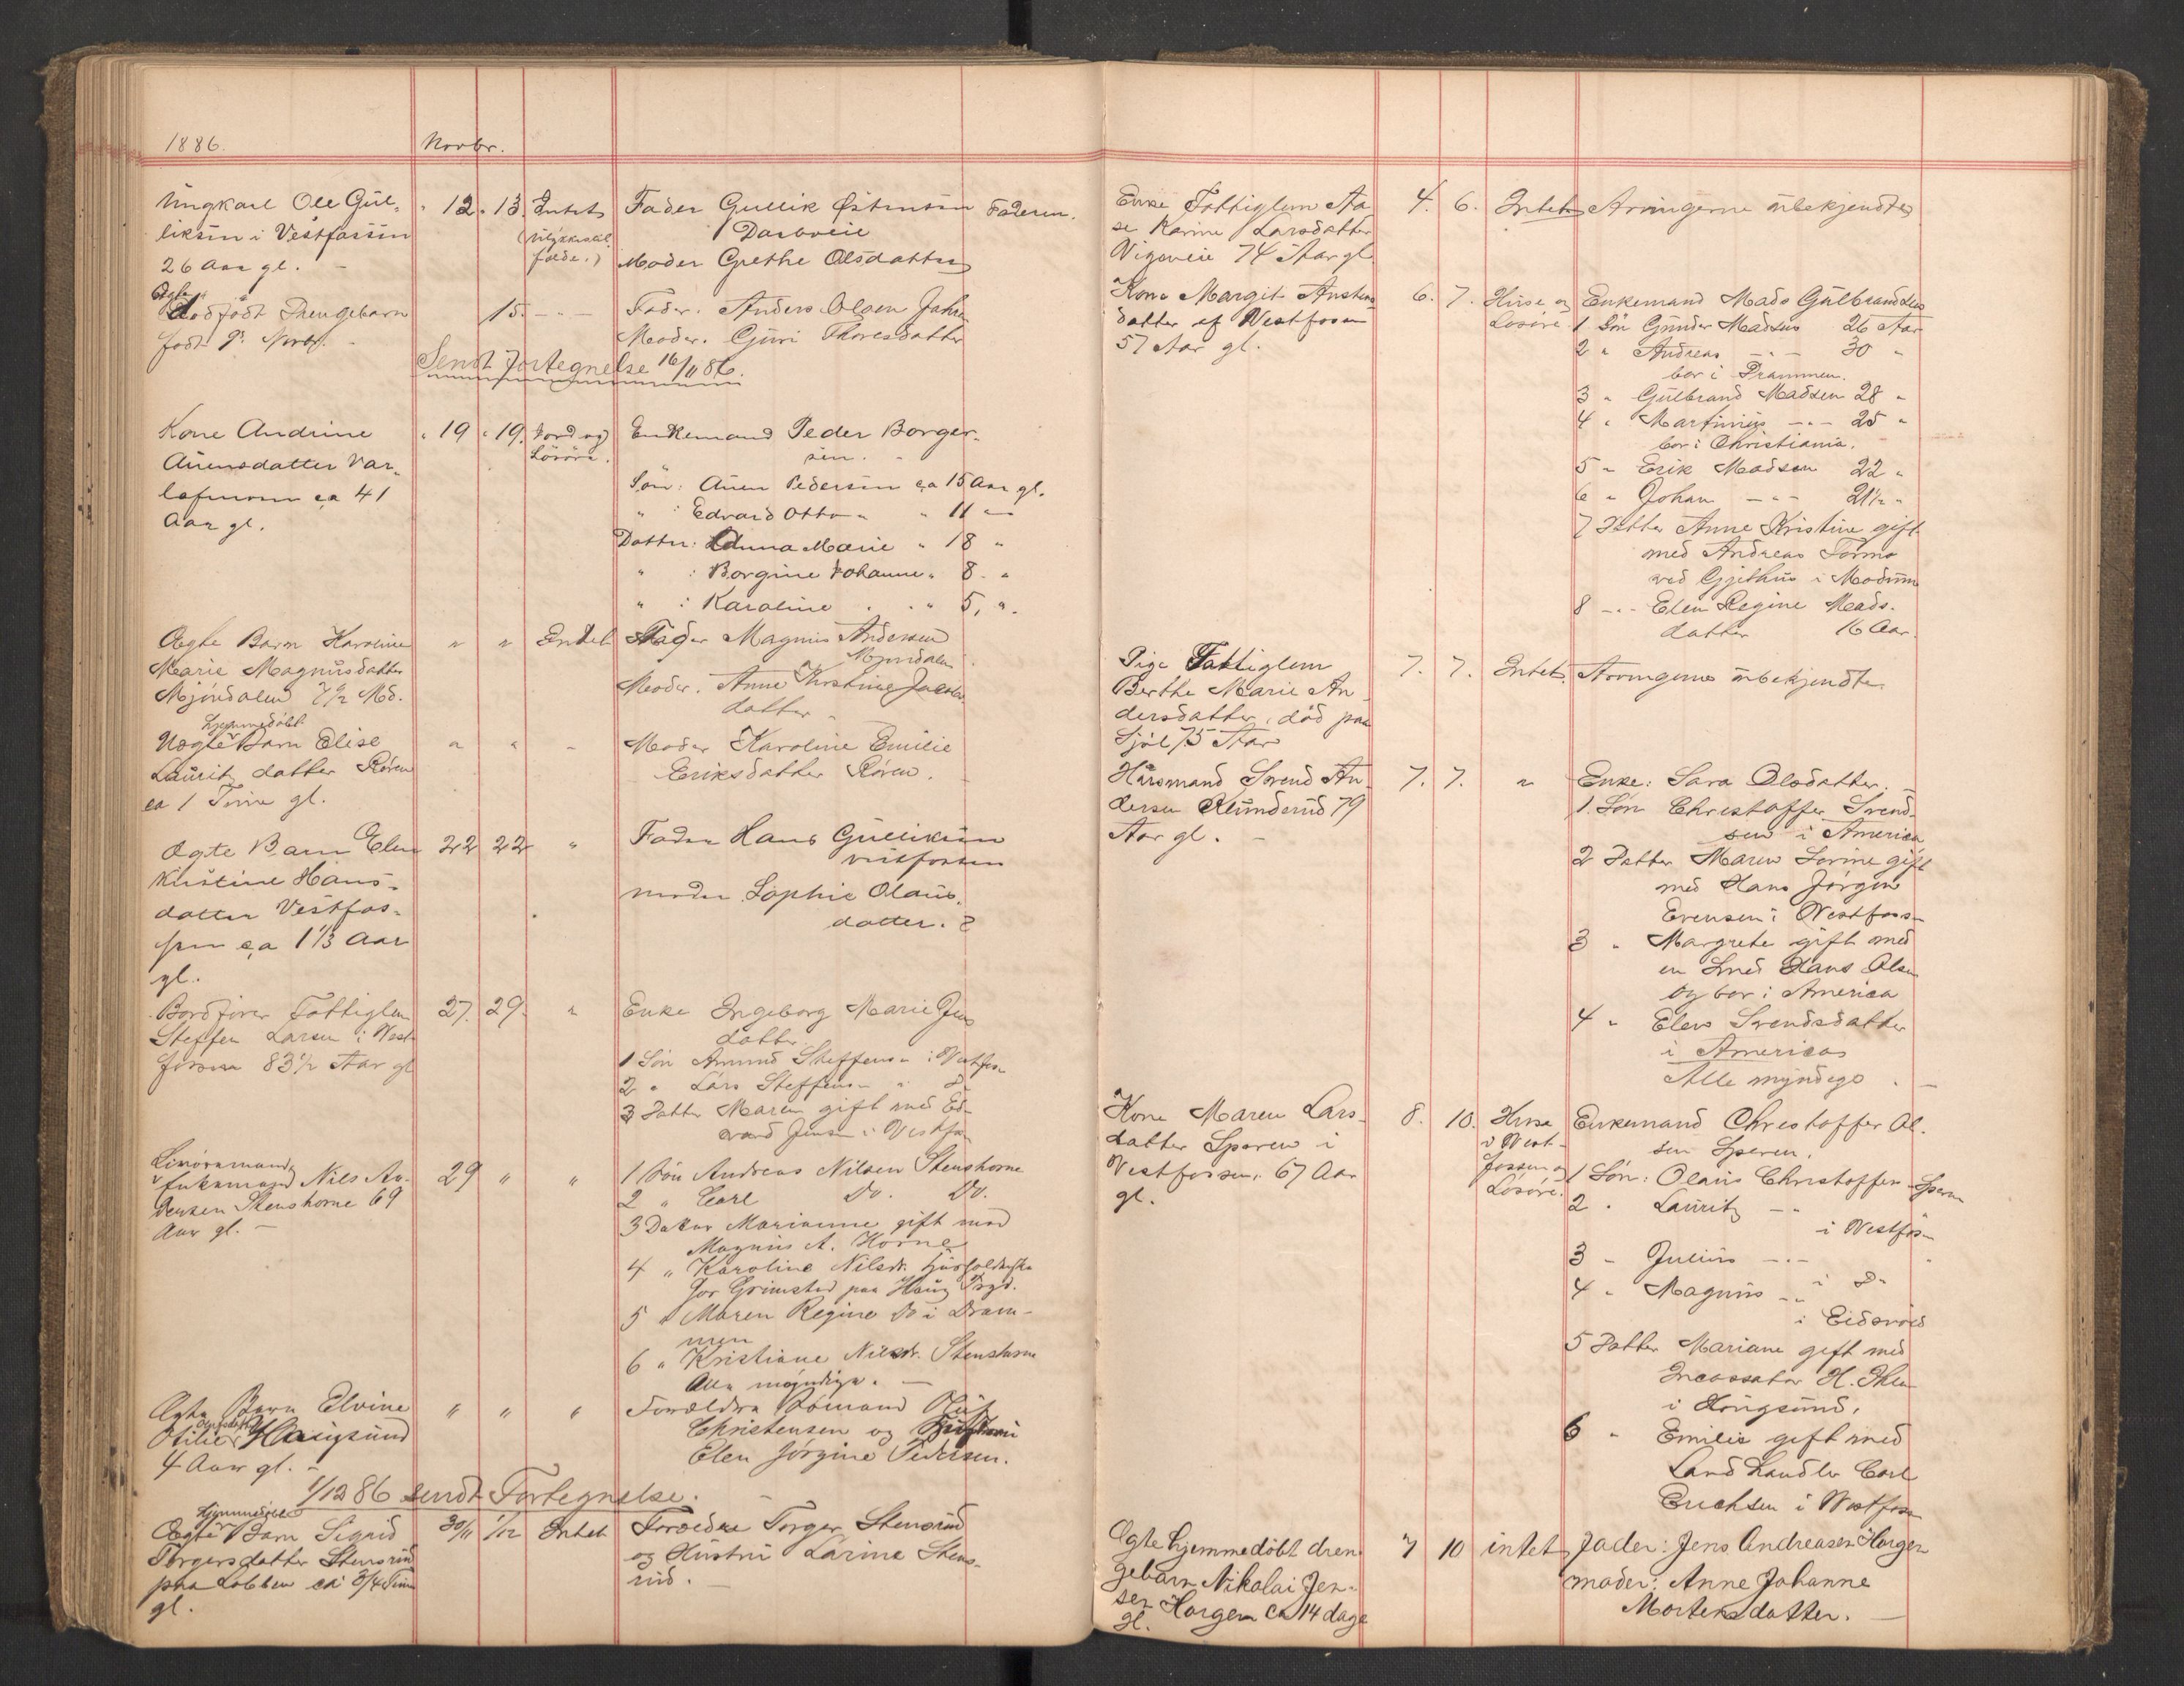 1886.
Novbr.
Ungkarl Ole Gul-
liksen i Vestfossen
26 Aar gl. -
" 12. " 13. Intet
(Ulykkestil-
fælde.)
Fader Gullik Østensen
Moder Grethe Olsdatter
Faderen.
Ægte
Dødfødt Drengebarn
født 9. Novbr.
15. - " -
Fader. Anders Olsen
Moder. Guri Thoresdatter
Sendt Fortegnelse 16/11 86.
Kone Andrine
Auensdatter Var-
lofmoen ca 41
Aar gl.
" 19 " 19. Jord og
Løsøre.
Enkemand Peder Borger-
sen.
Søn: Auen Pedersen ca 15 Aar gl.
" : Edvard Otto " " 11 "
Datter: Anna Marie " 18 "
" : Borgine Johanne " 8 " "
" : Karoline " " " 5, " .
Ægte Barn Karoline
Marie Magnusdatter
Mjøndalen 7 1/2 Md.
" " Intet
Fader Magnus Andersen
Mjøndalen
Moder. Anne Kirstine Jacobs
datter
hjemmedøbt
Uægte Barn Elise
Lauritz datter Røren
ca 1 Time gl.
" " "
Moder Karoline Emilie
Eriksdatter Røren.
Ægte Barn Elen
Kristine Hans-
datter Vestfos-
sen ca 1 1/3 Aar
gl.
22 22 "
Fader Hans Gulliksen
Vestfossen
Moder Sophie Olaus-
datter.
Bordfører Fattiglem
Steffen Larsen i Vest-
fossen 83 1/2 Aar gl
27. 29. "
Enke Ingeborg Marie Jens
datter
1 Søn Amund Steffensen i Vestfos-
2 " Lars Steffens- " D-
3 Datter Maren gift med Ed-
vard Jensen i Vestfos-
Enkemand Nils An-
dersen Stenshorne 69
Aar gl. -
29 " "
1 Søn Andreas Nilsen Stenshorne
2 " Carl Do. Do.
3 Datter Marianne gift med
Magnus A. Horne
4 " Karoline Nilsdr. Husholderske
for Grimsted paa Haug Prgd.
5 " Maren Regine Do i Dram-
men
6 " Kristiane Nilsdr. Stenshorne
Alle myndige. -
Ægte Barn Elvine
Otilie Haugsund
4 Aar gl. -
" " "
Forældre
Christensen og Hustru
Elen Jørgine Pedersen.
1/12 86 sendt Fortegnelse.
hjemmedøbt
Ægte Barn Sigrid
Torgersdatter Stensrud
paa Lobben ca 3/4 Time
gl.
30/11 1/12 Intet
Forældre Torger Stensrud
og Hustru Larine Stens-
rud.
Enke Fattiglem Aa-
se Karine Larsdatter
Vigeveie 74 Aar gl.
4. 6. Intet Arvingerne ubekjendte
Kone Margit Austens
datter af Westfossen
57 Aar gl.
6. 7. Huse og
Løsøre
Enkemand Mads Gulbrandsen
1 Søn Gunder Madsen 26 Aar
2 " Andreas - " - 30 "
bor i Drammen.
3 " Gulbrand Madsen 28 "
4 " Martinius - " - 25 "
bor i Christiania.
5 " Erik Madsen 22 "
6 " Johan - " - 21 1/2 "
7 Datter Anne Kristine gift
med Andreas Formo
ved Gjethus i Modum
8 - " - Elen Regine Mads-
datter 16 Aar.
Pige Fattiglem
Berthe Marie An
dersdatter, død paa
Sjøl 75 Aar
7. 7. Intet. Arvingerne ubekjendte.
Husmand Svend An
dersen 79
Aar gl. -
7. 7. "
Enke: Sara Olsdatter. -
1. Søn Christoffer Svend-
sen i America
2 Datter Maren Sorine gift
med Hans Jørgen
Evensen i Westfoss-
3 " Margrete gift med
en Smed Hans Olsen
og bor i America
4 " Elen Svendsdatter
i America
Alle myndige. -
Kone Maren Lars-
datter Speren i
Vestfossen. 67 Aar
gl.
8. 10. Huse
i West-
fossen og
Løsøre.
Enkemand Christoffer Ol-
sen Speren.
1 Søn: Olaus Christoffer- Speren
2 " Lauritz - "
i Vestfos-
3 " Julius - " - "
i D-
4 " Magnus - "
i Eidsvold
5 Datter Mariane gift med
Incassator H. Thu-
i Hougsund.
6 " Emilie gift med
Landhandler Carl
Erichsen i Westfoss-
Ægte hjemmedøbt dren-
gebarn Nikolai Jen-
sen Horgen ca 14 dage
gl.
7 10 intet
Fader: Jens Andreasen Horgen
moder: Anne Johanne
Mortensdatter. -